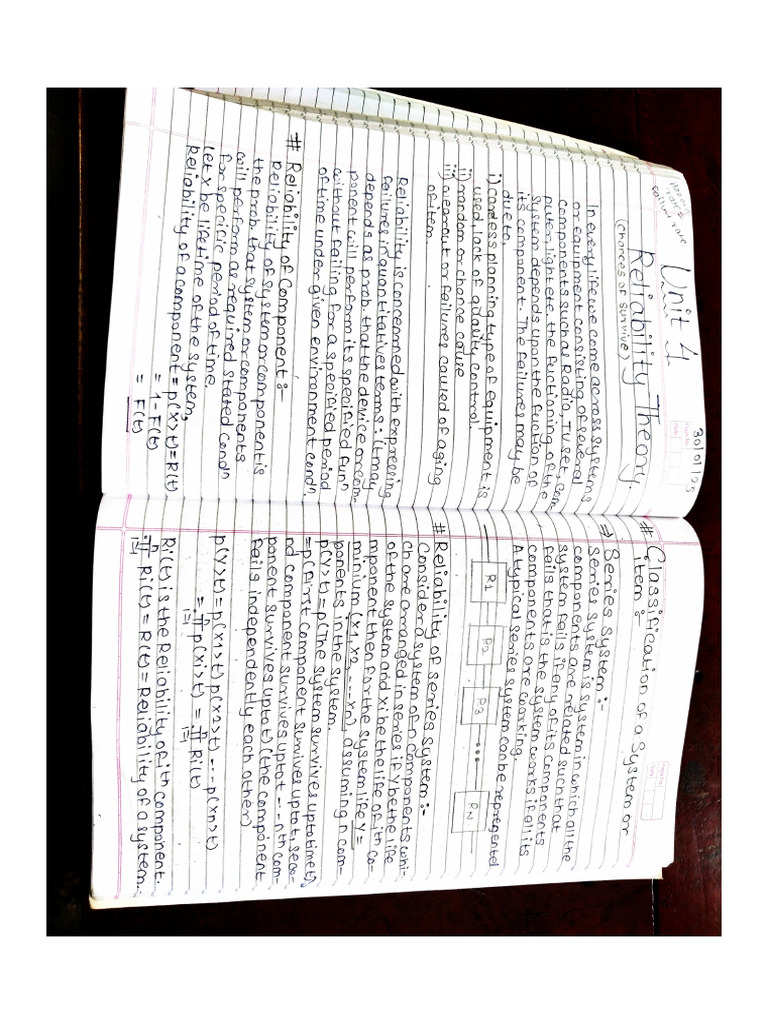 30/01/25
Hazard
rate =
failure rate
Unit 1
Reliability Theory.
(chances of survive)
In every life we come across systems
or equipment consisting of several
components such as Radio, TV set, com
puter, light ete. the fuctioning of the
system depends upon the fuction of
its component. The failures may be
due to.
i) careless planning type of equipment is
used, lack of quality control.
ii) random or chance cause
iii) wearout or failures caused of aging
of item.
Reliability is concernned with expressing
failures in quantitatives terms: (t may
depends as prob. that the device or com
ponent will perform its specified funⁿ
without failing for a specified period
of time under given environment condⁿ.
# Reliability of Component :-
Reliability of system or component is
the prob. that system or components
will perform as required stated condⁿ
for specific period of time.
Let x be lifetime of the system,
Reliability of a component = p(x>t) = R(t)
= 1 - F(t)
= F̄(t)
# Classification of a System or
item :-
⇒ Series System :-
Series System is system in which all the
components are related such that
system fails if any of its components
fails that is the system works if all its
components are working.
A typical series system can be represented
R1 R2 R3 ... RN
# Reliability of series system :-
Consider a system of n components whi-
ch are arranged in series if Y be the life
of the system and xi be the life of ith co-
mponent then for the system life Y =
minium (x1, x2 --- xn), assuming n com-
ponents in the system.
p(Y>t) = p(The system survives upto time t)
= p(first component survives upto t, seco-
nd component survives upto t --- nth com-
ponent survives upto t) (the component
fails independently each other)
p(Y>t) = p(x1>t) p(x2>t) --- p(xn>t)
= ⁿπᵢ₌₁ p(xi>t) = ⁿπᵢ₌₁ Ri(t)
Ri(t) is the Reliability of ith component.
ⁿπᵢ₌₁ Ri(t) = R(t) = Reliability of a system.